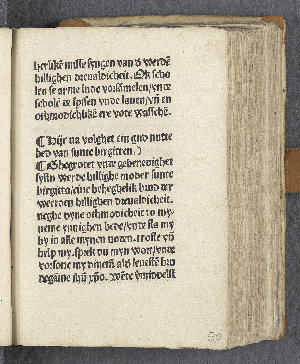 herliké misse syngen van d werdé
hillighen drevaldicheit. Ok scho
len se arme lude vorsãmelen / vnde
scholẽ se spisen vnde lauen / vñ en
othmodichlikẽ ere vote wasschẽ.
¶ Hijr na volghet ein gud nutte
bed van sunte birgitten.)
¶ Ghegrotet vnde gebenediget
systu werde hillighe moder sunte
birgitta / eine behegelik brud der
werden hillighen drevaldicheit.
neghe dyne othmodicheit to my-
neme ynnighen bede / vnde sta my
by in alle mynen noden. troste vñ
help my. sprek du myn wort / vnde
vorsone my dinem als leuestẽ bru
degãme ihũ xp̃o. Wẽte